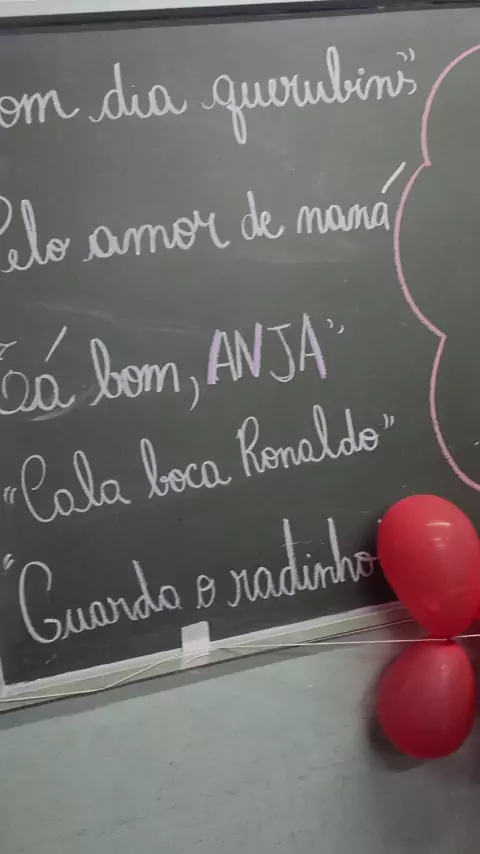 om dia querubins"
Pelo amor de naná
Tá bom, ANJA"
"Cala boca Ronaldo"
"Guarda o radinho